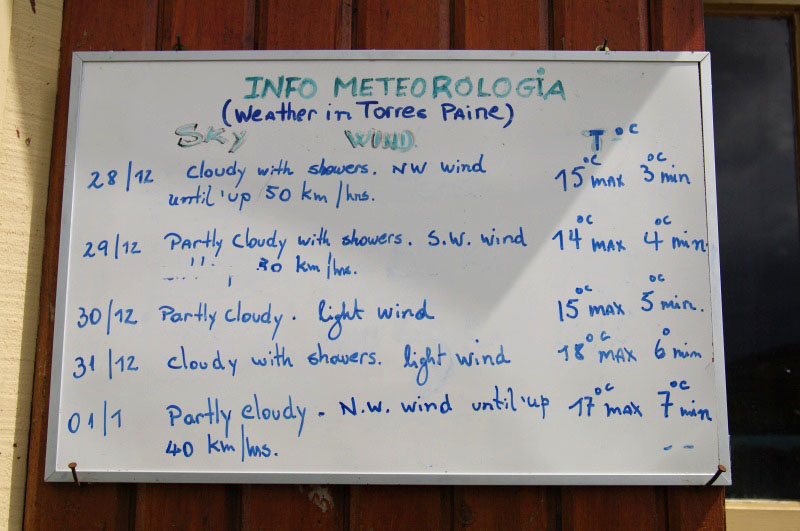 INFO METEOROLOGIA
(Weather in Torres Paine)
SKY WIND T °C
28/12 Cloudy with showers. NW wind 15°C MAX 3°C min
until 'up 50 km/hrs.
29/12 Partly Cloudy with showers. S.W. wind 14°C MAX 4°C min.
30 km/hrs.
30/12 Partly cloudy. light wind 15°C MAX 5°C min.
31/12 Cloudy with showers. light wind 18°C MAX 6° min
01/1 Partly cloudy - N.W. wind until 'up 17°C MAX 7°C min
40 km/hrs.